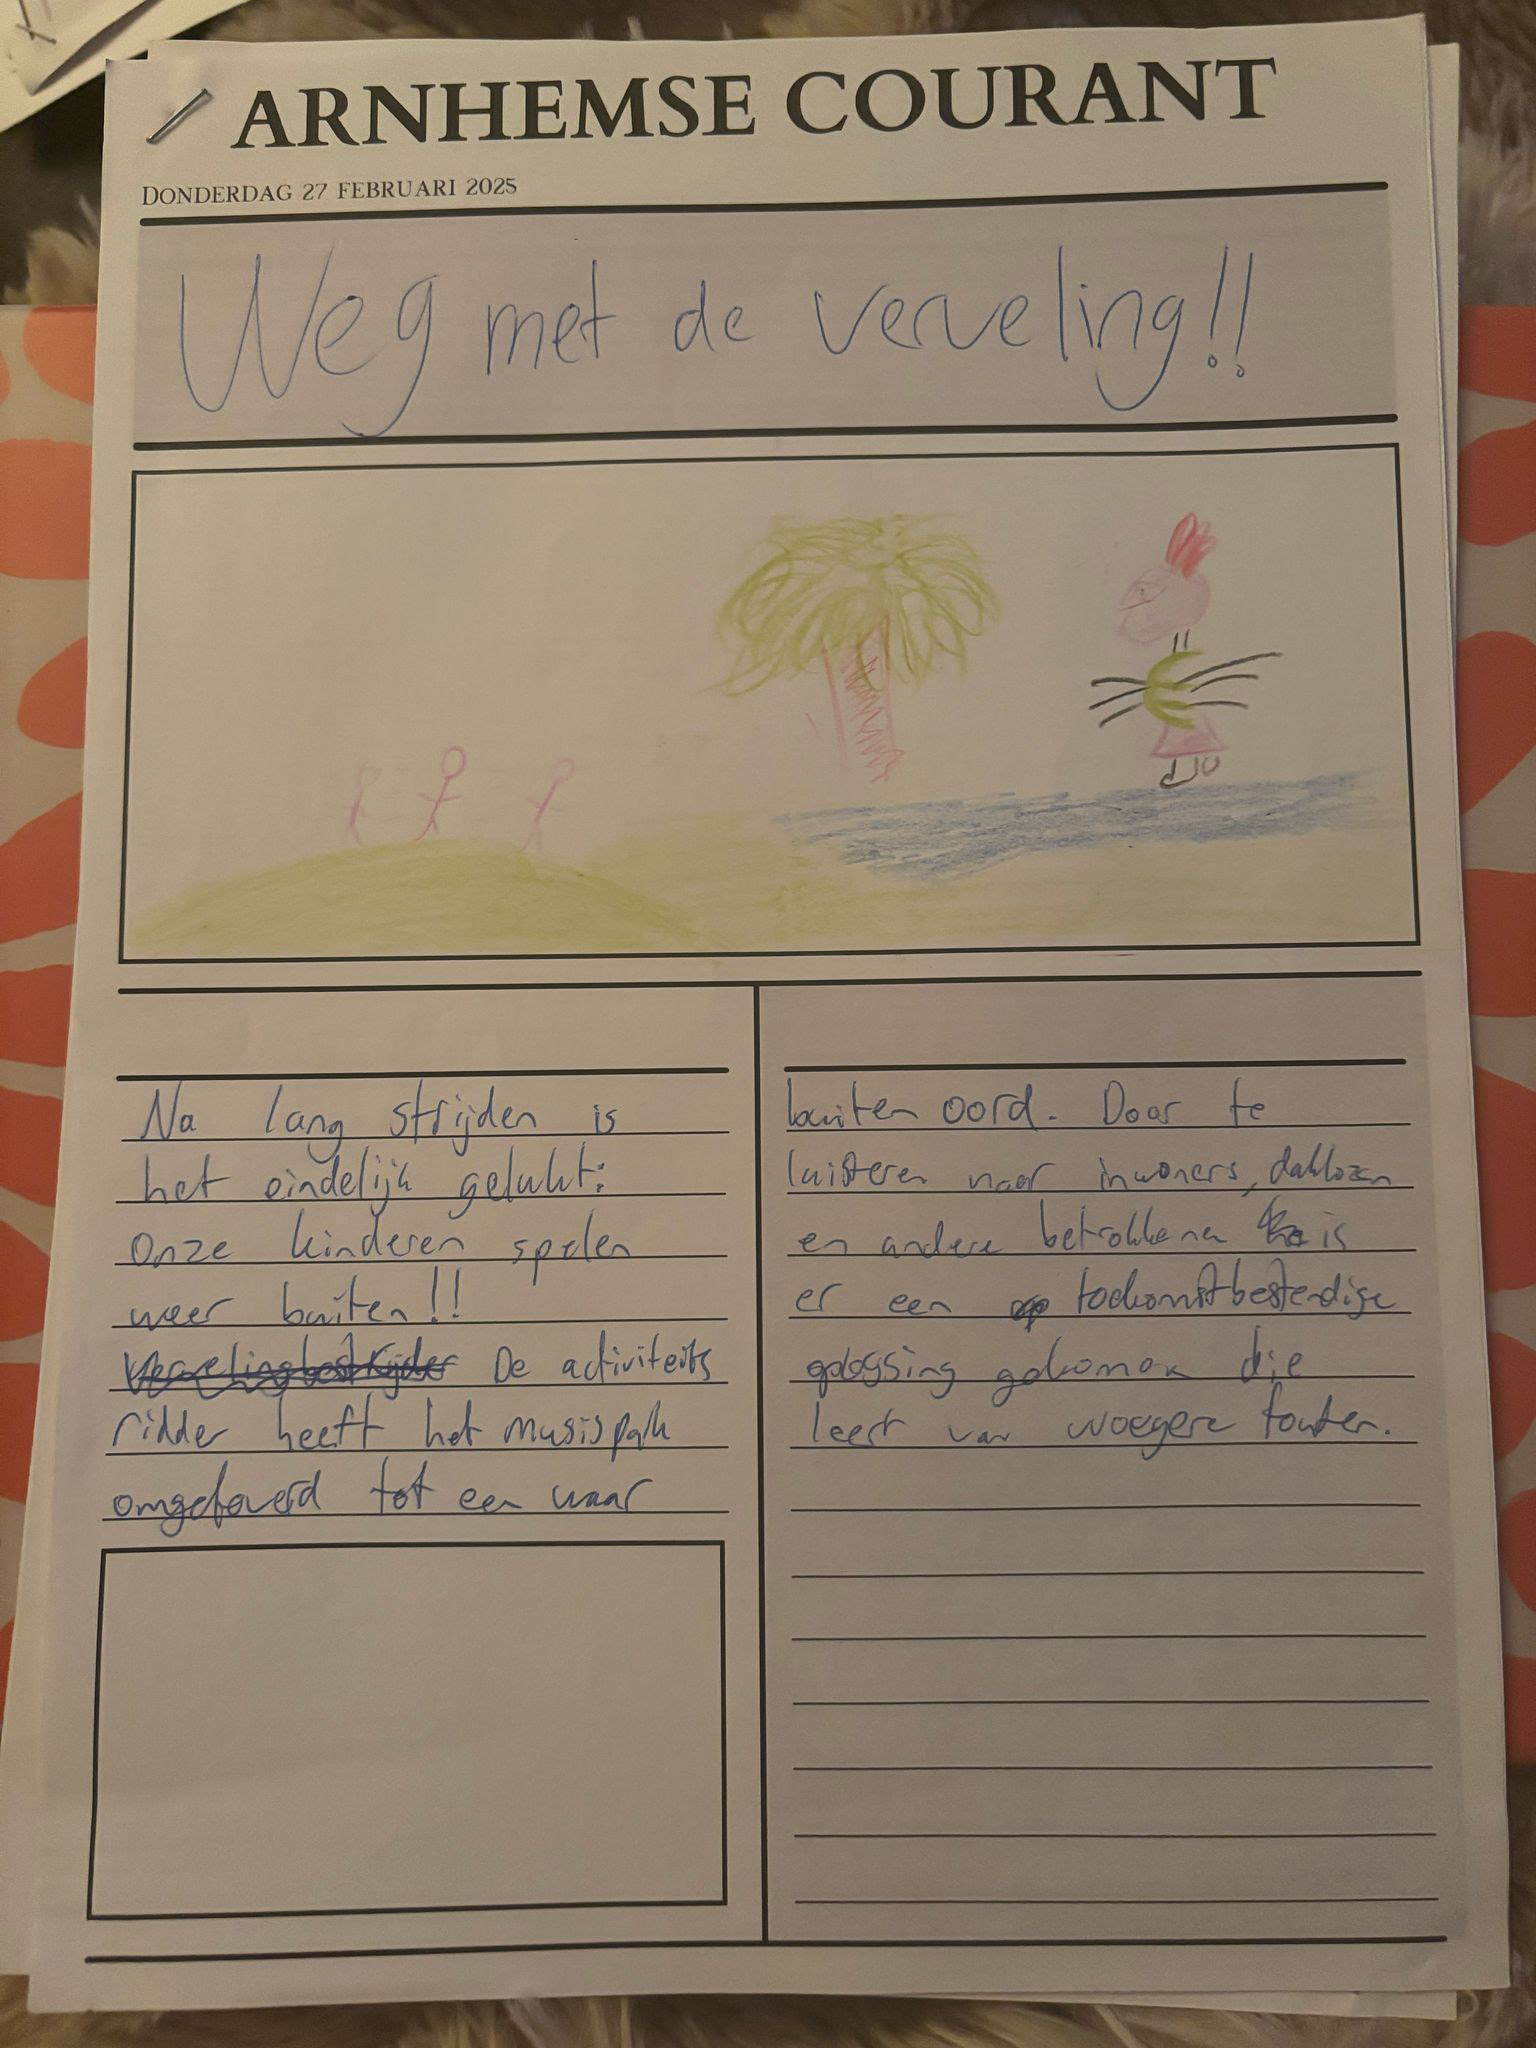 ARNHEMSE COURANT
DONDERDAG 27 FEBRUARI 2025
Weg met de verveling!!
Na lang strijden is
het eindelijk gelukt:
onze kinderen spelen
weer buiten!!
Vervelingbestrijder De activiteits
ridder heeft het musispark
omgetoverd tot een waar
buiten oord. Door te
luisteren naar inwoners, daklozen
en andere betrokkenen is
er een toekomstbestendige
oplossing gekomen die
leert van vroegere fouten.